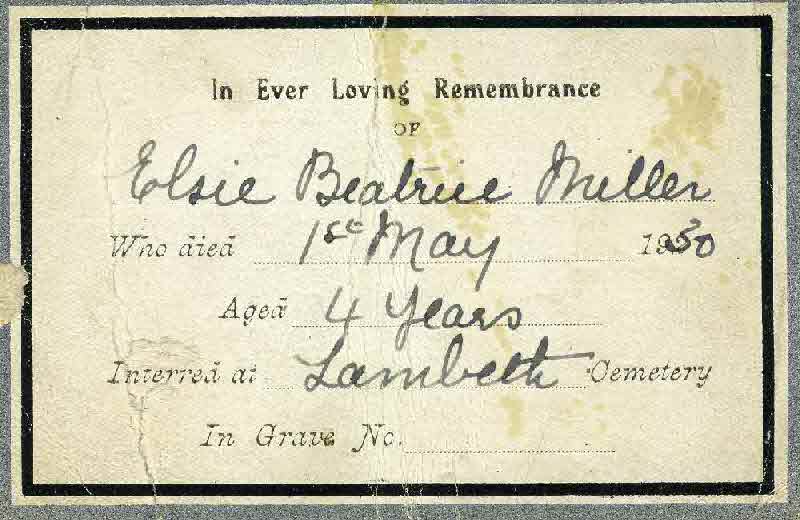 In Ever Loving Remembrance
OF
Elsie Beatrice Miller
Who died 1st May 1930
Aged 4 Years
Interred at Lambeth Cemetery
In Grave No.